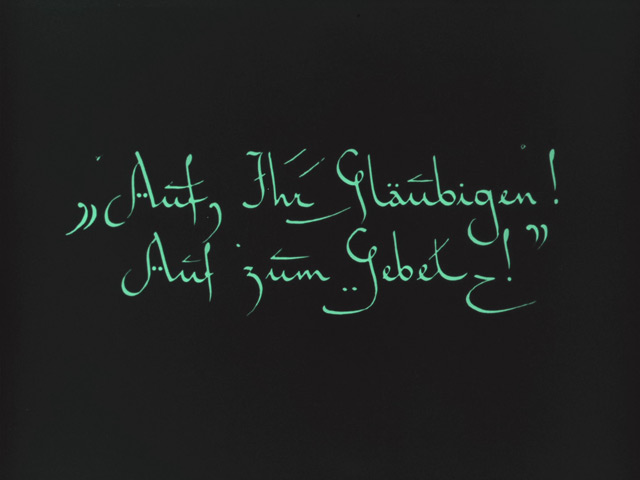 „Auf, Ihr Gläubigen!
Auf zum Gebet!”